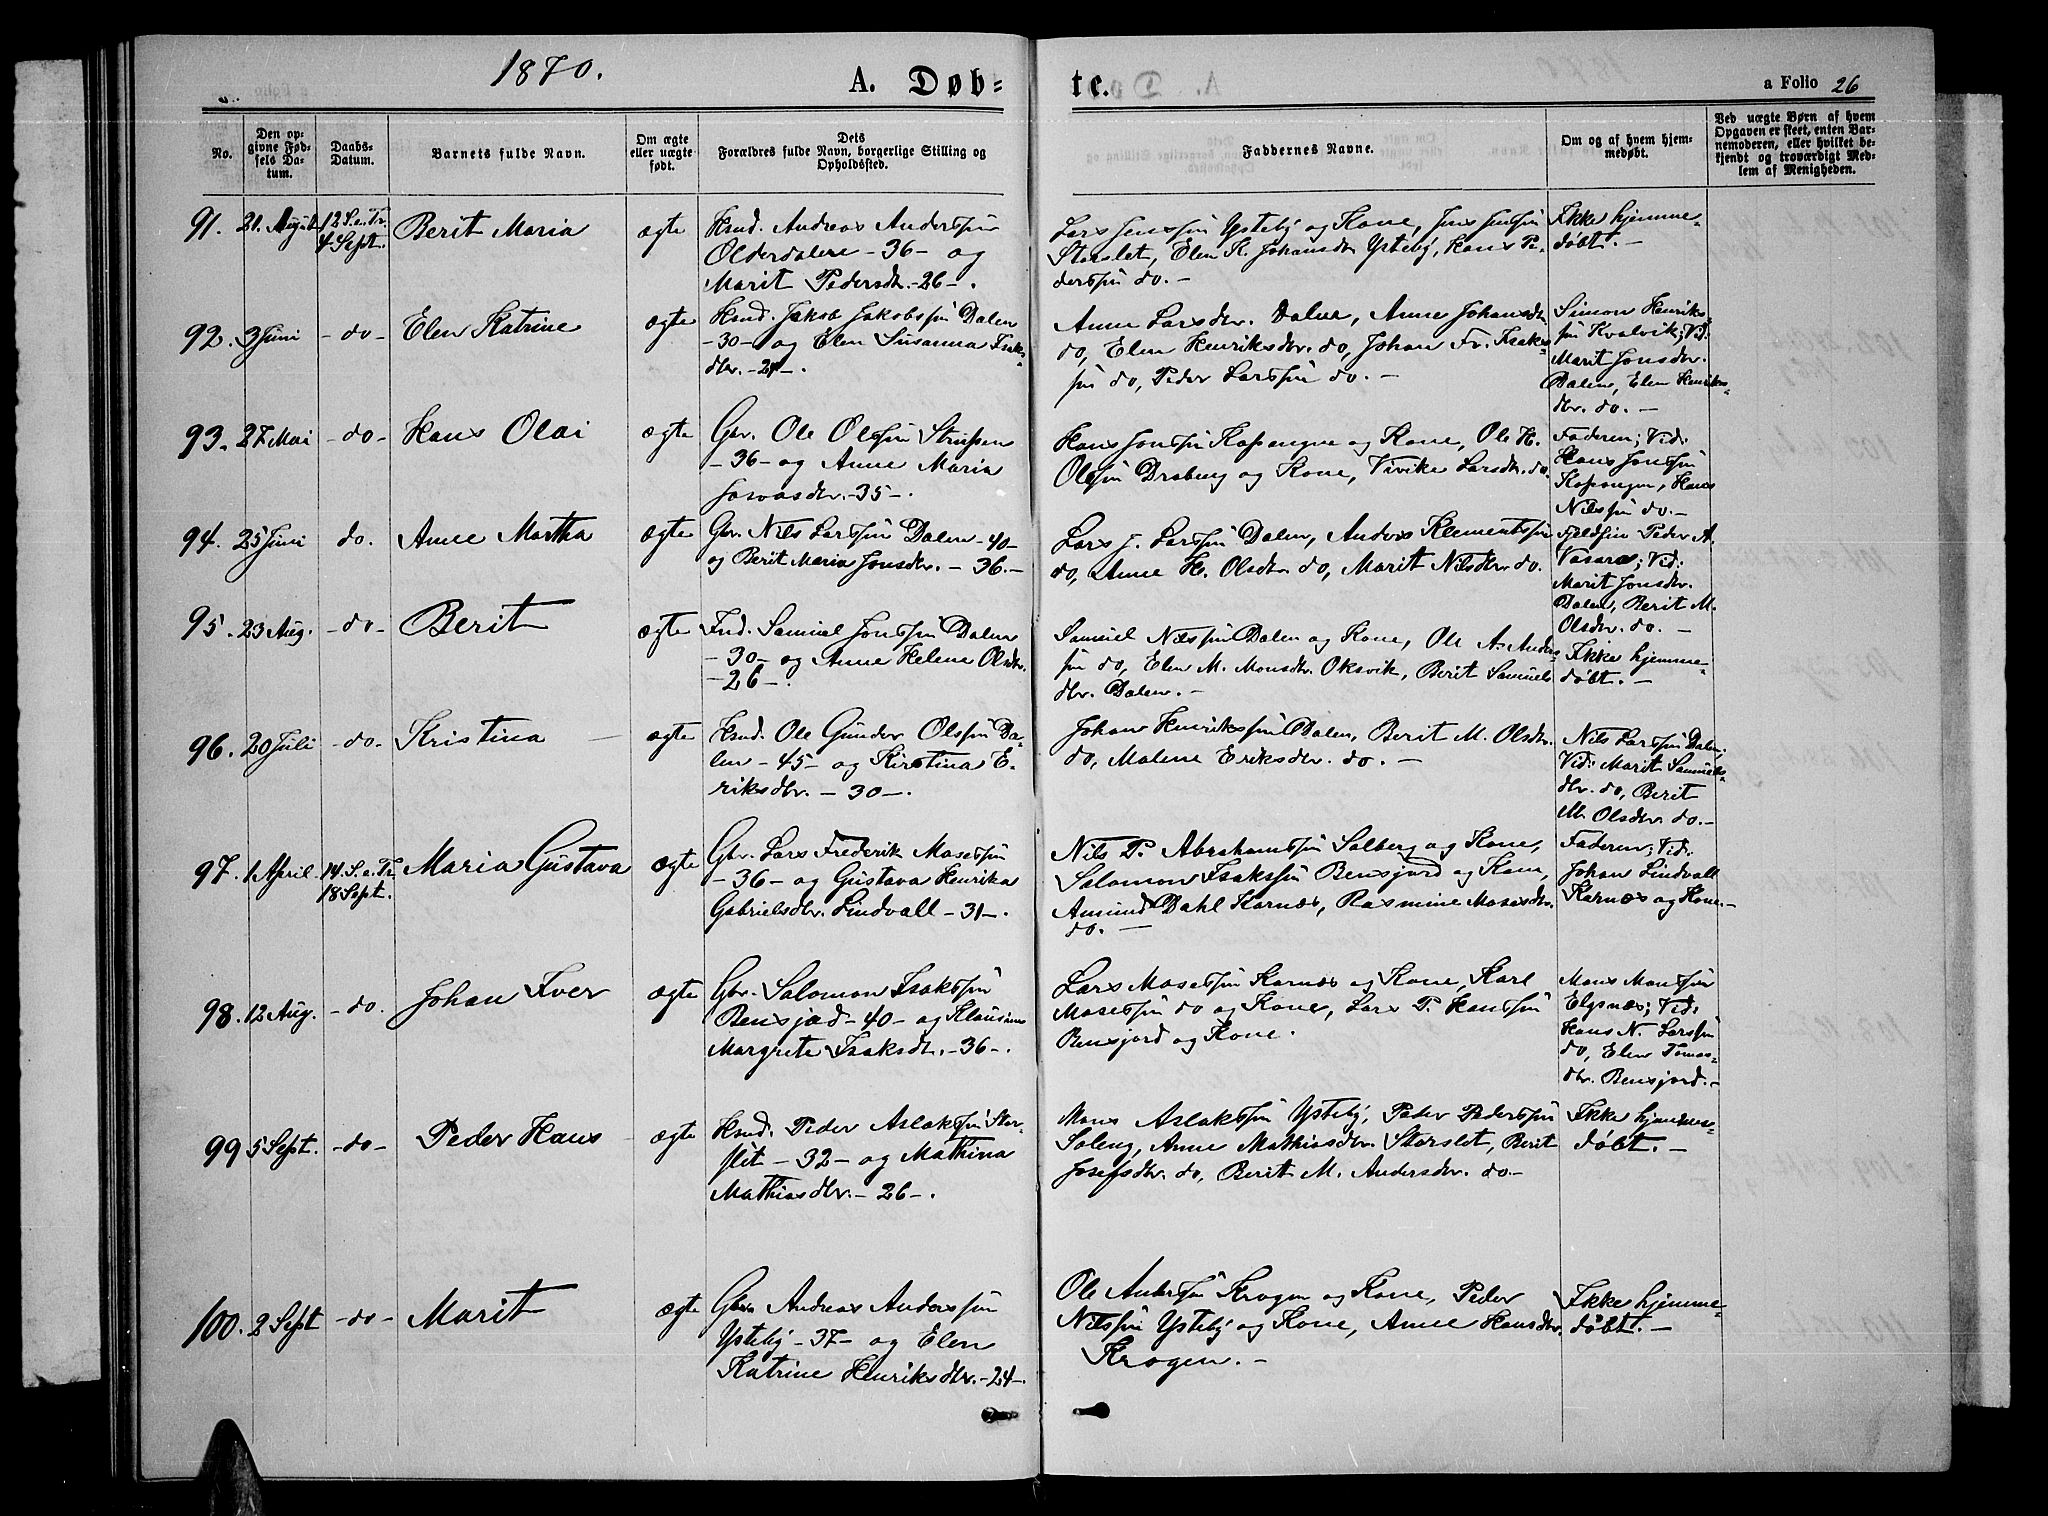 1870.
A. Døb=
te.
a Folio 26
No.
Den op=
givne Fød=
sels Da=
tum.
Daabs=
Datum.
Barnets fulde Navn.
Om ægte
eller uægte
født.
Dets
Forældres fulde Navn, borgerlige Stilling og
Opholdssted.
Faddernes Navne.
Om og af hvem hjem=
medøbt.
Ved uægte Børn af hvem
Opgaven er skeet, enten Bar=
nemoderen, eller hvilket be=
kjendt og troværdigt Med=
lem af Menigheden.
91. 21. August 12 S. e. Tr. 4 Sept. Berit Maria ægte
Hmd. Andreas Anderssøn
Olderdalen - 36 - og
Marit Pedersdtr. - 26 -.
Lars Jenssøn Ysteby og Kone, Jens Jenssøn
Storslet, Elen K. Johansdtr Ysteby, Hans Pe=
derssøn do. -
Ikke hjemme=
døbt. -
92. 3 Juni - do - Elen Katrine ægte
Hmd. Jakob Jakobssøn Dalen
- 30 - og Elen Susanna Isaks=
dtr. - 21 -.
Anne Larsdtr. Dalen, Anne Johansdtr
do, Elen Henriksdtr. do, Johan Fr. Isaks=
søn do, Peder Larssøn do. -
Simon Henriks=
søn Kvalvik; Vid:
Marit Jonsdtr.
Dalen, Elen Henriks=
dtr. do. -
93. 27 Mai - do - Hans Olai ægte
Gbr. Ole Olssøn
- 36 - og Anne Maria
- 35 -.
Hans Jonssøn og Kone, Ole H.
Olssøn Draberg og Kone, Vivike Larsdtr. do.
Faderen; Vid:
Hans Jonssøn
Hans
Nilssøn do. -
94. 25 Juni do. Anne Martha ægte
Gbr. Nils Larssøn Dalen - 40 -
og Berit Maria Jonsdtr. - 36. -
Lars J. Larssøn Dalen, Anders Klementssøn
do, Anne H. Olsdtr. do, Marit Nilsdtr. do.
Peder A.
Vasara; Vid:
Marit Jonsdtr.
Dalen, Berit M.
Olsdtr. do. -
95. 23 Aug. - do - Berit ægte
Ind. Samuel Jonssøn Dalen
- 30 - og Anne Helene Olsdtr.
- 26 -.
Samuel Nilssøn Dalen og Kone, Ole A. Anders=
søn do, Elen M. Monsdtr. Oksvik, Berit Samuels
dtr. Dalen. -
Ikke hjemme=
døbt. -
96. 20 Juli - do - Kristina ægte
Hmd. Ole Gunder Olssøn Da=
len - 45 - og Kirstina E=
riksdtr. - 30 -.
Johan Henrikssøn Dalen, Berit M. Olsdtr.
do, Malene Eriksdtr. do. -
Nils Larssøn Dalen;
Vid: Marit Samuels=
dtr. do, Berit
M. Olsdtr. do. -
97. 1 April. 14. S. e. Tr. 18 Sept. Maria Gustava ægte
Gbr. Lars Frederik Mosessøn
- 36 - og Gustava Henrika
Gabrielsdtr. Lindvall - 31 -.
Nils P. Abrahamssøn Solberg og Kone,
Salomon Isakssøn Bensjord og Kone,
Amund Dahl Karnæs, Rasmine Mosesdtr.
do. -
Faderen; Vid:
Johan Lindvall
Karnæs og Kone. -
98. 12 Aug. - do. Johan Iver ægte
Gbr. Salomon Isakssøn
Bensjord - 40 - og Klausine
Margrete Isaksdtr. - 36 -.
Lars Mosessøn Karnæs og Kone, Karl
Mosessøn do og Kone, Lars P. Hanssøn
Bensjord og Kone.
Mons Monssøn
Elgsnæs; Vid:
Hans N. Larssøn
do, Elen Tomas=
dtr. Bensjord. -
99 5 Sept. - do - Peder Hans ægte
Hmd. Peder Aslakssøn Stor=
slet - 32 - og Mathina
Mathiasdtr. - 26 -.
Mons Aslakssøn Ysteby, Peder Pederssøn
Soleng, Anne Mathiasdtr. Storslet, Berit
Josefsdtr. do, Berit M. Andersdtr. do -
Ikke hjemme=
døbt. -
100. 2 Sept - do - Marit ægte
Gbr. Andreas Anderssøn
Ysteby - 37 - og Elen
Katrine Henriksdtr. - 24 -.
Ole Anderssøn Krogen og Kone, Peder
Nilssøn Ysteby og Kone, Anne Hansdtr.
Krogen. -
Ikke hjemme=
døbt. -